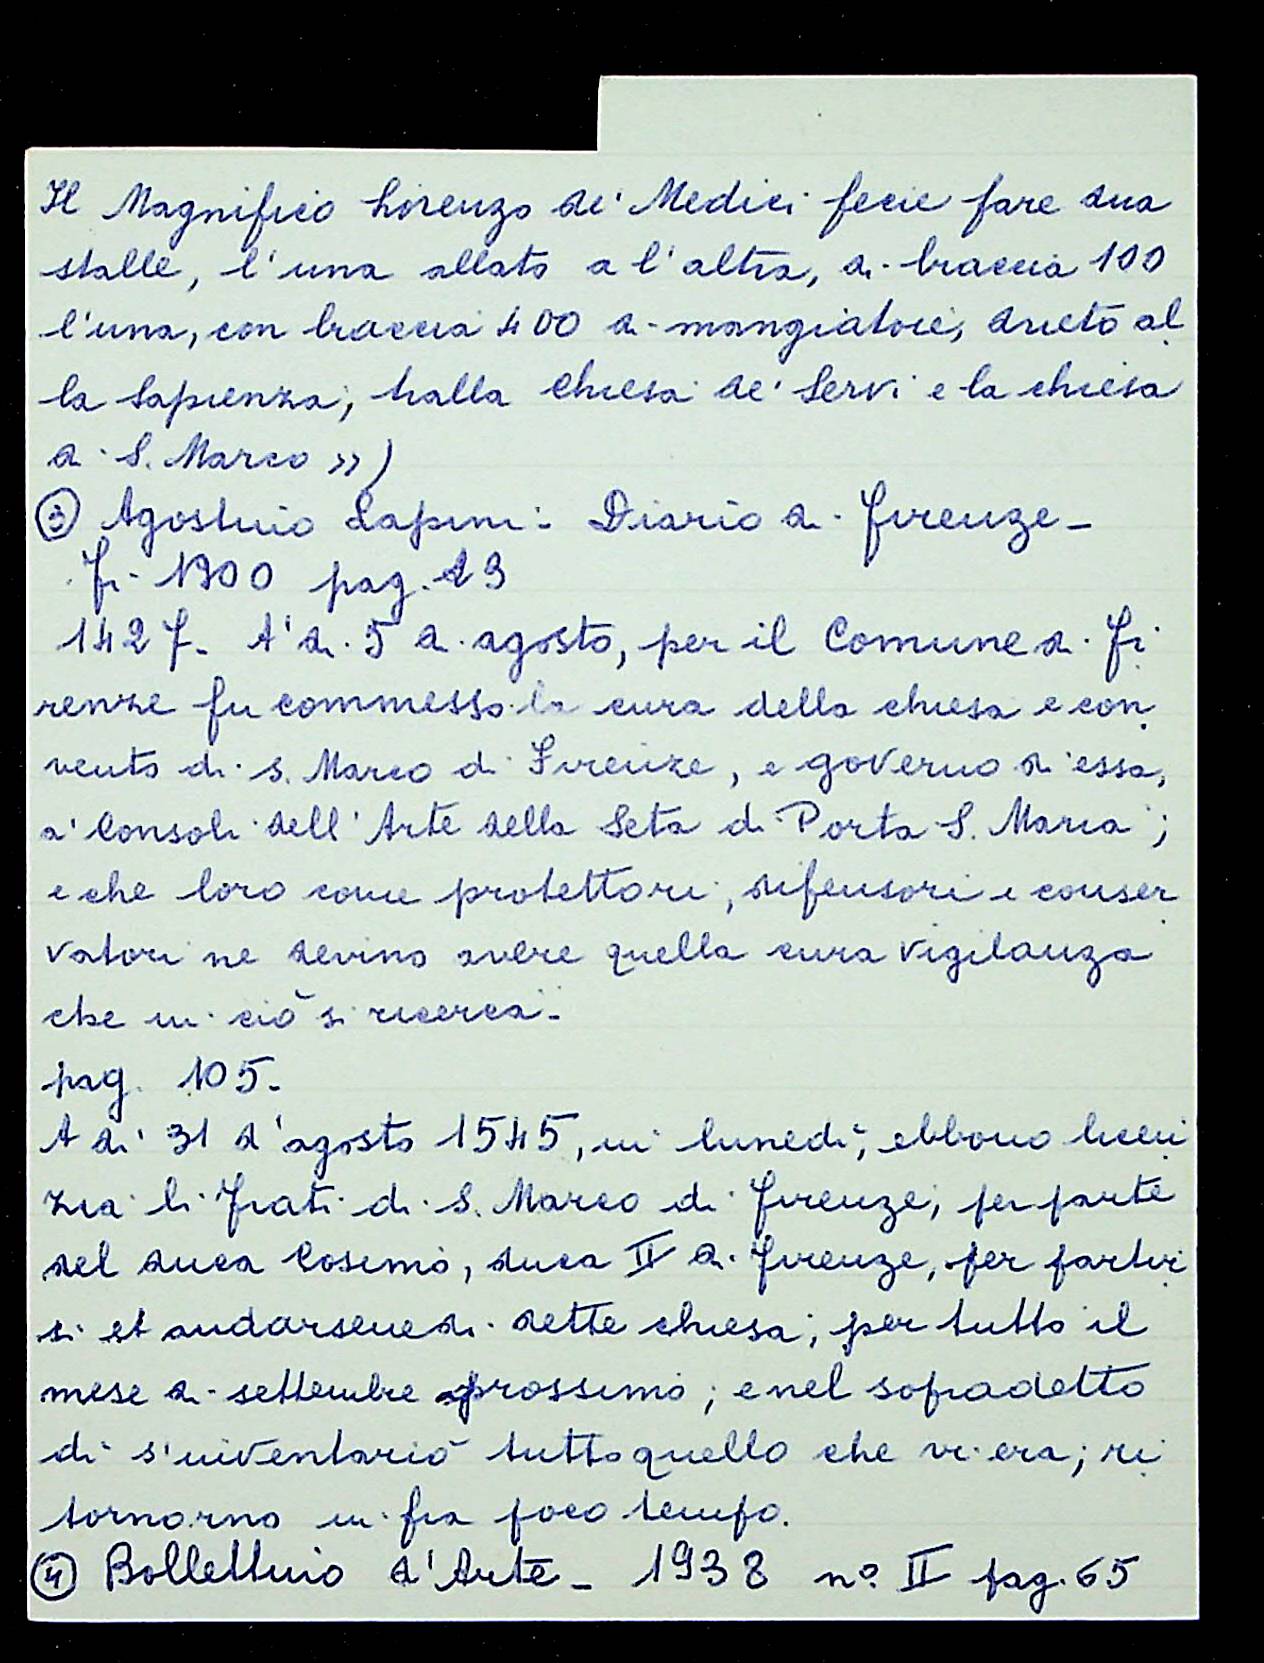 Il Magnifico Lorenzo de' Medici fecie fare dua
stalle, l'una allato a l'altra, di braccia 100
l'una, con braccia 400 di mangiatoie, drieto al
la Sapienza, tralla chiesa de' Servi e la chiesa
di S. Marco »)
③ Agostino Lapini: Diario di Firenze -
Fi- 1900 pag. 23
1427. A' dì 5 di agosto, per il Comune di Fi
renze fu commesso la cura della chiesa e con
vento di S. Marco di Firenze, e governo di essa,
a' Consoli dell'Arte della Seta di Porta S. Maria;
e che loro come protettori, difensori e conser
vatori ne devino avere quella cura vigilanza
che in ciò si ricerca -
pag. 105.
A dì 31 d'agosto 1545, in lunedì, ebbono licen
zia li frati di S. Marco di Firenze, per parte
del duca Cosimo, duca II di Firenze, per partir
si et andarsene di dette chiesa, per tutto il
mese di settembre prossimo; e nel sopradetto
dì s'inventariò tutto quello che vi era; ri
tornorno in fra poco tempo.
④ Bollettino d'Arte - 1938 n° II pag. 65